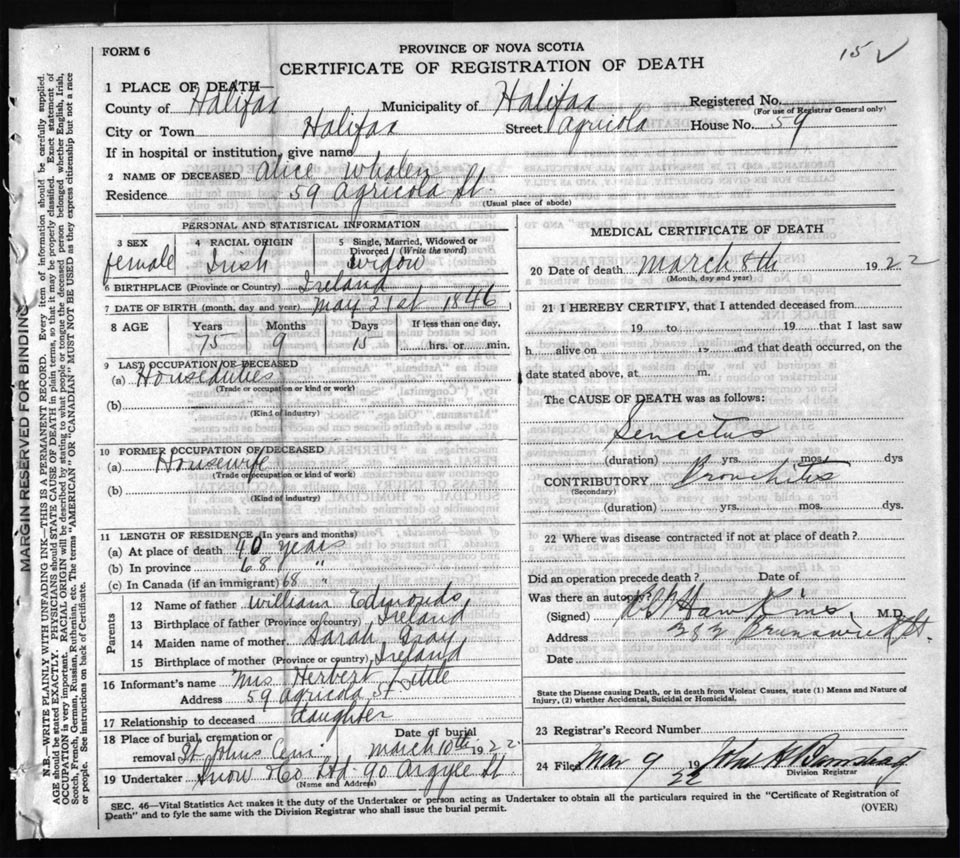 FORM 6
15 ✓
PROVINCE OF NOVA SCOTIA
CERTIFICATE OF REGISTRATION OF DEATH
1 PLACE OF DEATH—
County of Halifax Municipality of Halifax Registered No.
(For use of Registrar General only)
City or Town Halifax Street Agricola House No. 59
If in hospital or institution, give name
2 NAME OF DECEASED Alice Whalen
Residence 59 Agricola St.
(Usual place of abode)
PERSONAL AND STATISTICAL INFORMATION
3 SEX 4 RACIAL ORIGIN 5 Single, Married, Widowed or Divorced? (Write the word)
female Irish Widow
6 BIRTHPLACE (Province or Country) Ireland
7 DATE OF BIRTH (month, day and year) May 21st 1846
8 AGE Years Months Days If less than one day,
75 9 15 hrs. or min.
9 LAST OCCUPATION OF DECEASED
(a) Houseduties
(Trade or occupation or kind or work)
(b)
(Kind of industry)
10 FORMER OCCUPATION OF DECEASED
(a) Housewife
(Trade or occupation or kind or work)
(b)
(Kind of industry)
11 LENGTH OF RESIDENCE (In years and months)
(a) At place of death 40 years
(b) In province 68 "
(c) In Canada (if an immigrant) 68 "
Parents
12 Name of father William Edmonds
13 Birthplace of father (Province or country) Ireland
14 Maiden name of mother Sarah Gray
15 Birthplace of mother (Province or country) Ireland
16 Informant's name Mrs Herbert Little
Address 59 Agricola St
17 Relationship to deceased daughter
18 Place of burial, cremation or removal St. Johns Cem. Date of burial March 10th 1922
19 Undertaker Snow & Co Ltd. 90 Argyle St
(Name and Address)
MEDICAL CERTIFICATE OF DEATH
20 Date of death March 8th 1922
(Month, day and year)
21 I HEREBY CERTIFY, that I attended deceased from
19 to 19 that I last saw
h alive on 19 and that death occurred, on the
date stated above, at m.
The CAUSE OF DEATH was as follows:
Senectus
(duration) yrs. mos. dys
CONTRIBUTORY Bronchitis
(Secondary)
(duration) yrs. mos. dys.
22 Where was disease contracted if not at place of death?
Did an operation precede death? Date of
Was there an autopsy?
(Signed) Hawkins M.D.
Address 282 Brunswick St.
Date
State the Disease causing Death, or in death from Violent Causes, state (1) Means and Nature of
Injury, (2) whether Accidental, Suicidal or Homicidal.
23 Registrar's Record Number
24 Filed Mar 9 1922
Division Registrar
SEC. 46—Vital Statistics Act makes it the duty of the Undertaker or person acting as Undertaker to obtain all the particulars required in the "Certificate of Registration of
Death" and to fyle the same with the Division Registrar who shall issue the burial permit.
(OVER)
MARGIN RESERVED FOR BINDING
N.B.—WRITE PLAINLY WITH UNFADING INK—THIS IS A PERMANENT RECORD. Every item of information should be carefully supplied.
AGE should be stated EXACTLY. PHYSICIANS should STATE CAUSE OF DEATH in plain terms, so that it may be properly classified. Exact statement of
OCCUPATION is very important. RACIAL ORIGIN will be described by stating to what people or tongue the deceased person belonged, whether English, Irish,
Scotch, French, German, Russian, Ruthenian, etc. The terms "AMERICAN" OR "CANADIAN" MUST NOT BE USED as they express citizenship but not a race
or people. See instructions on back of Certificate.